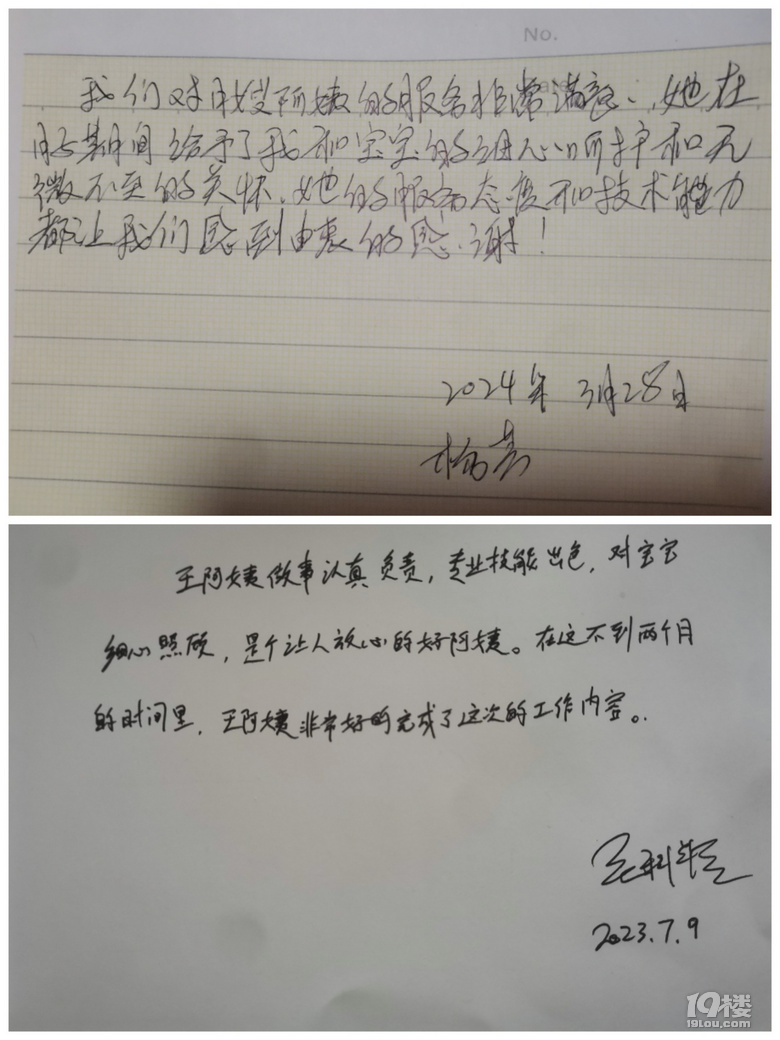 No.
我们对月嫂阿姨的服务非常满意、她在
月子期间给予了我和宝宝的细心呵护和无
微不至的关怀、她的服务态度和技术能力
都让我们感到由衷的感谢！
2024年 3月28日
王阿姨做事认真负责，专业技能出色，对宝宝
细心照顾，是个让人放心的好阿姨。在这不到两个月
的时间里，王阿姨非常好的完成了这次的工作内容。
2023.7.9
19楼
19lou.com